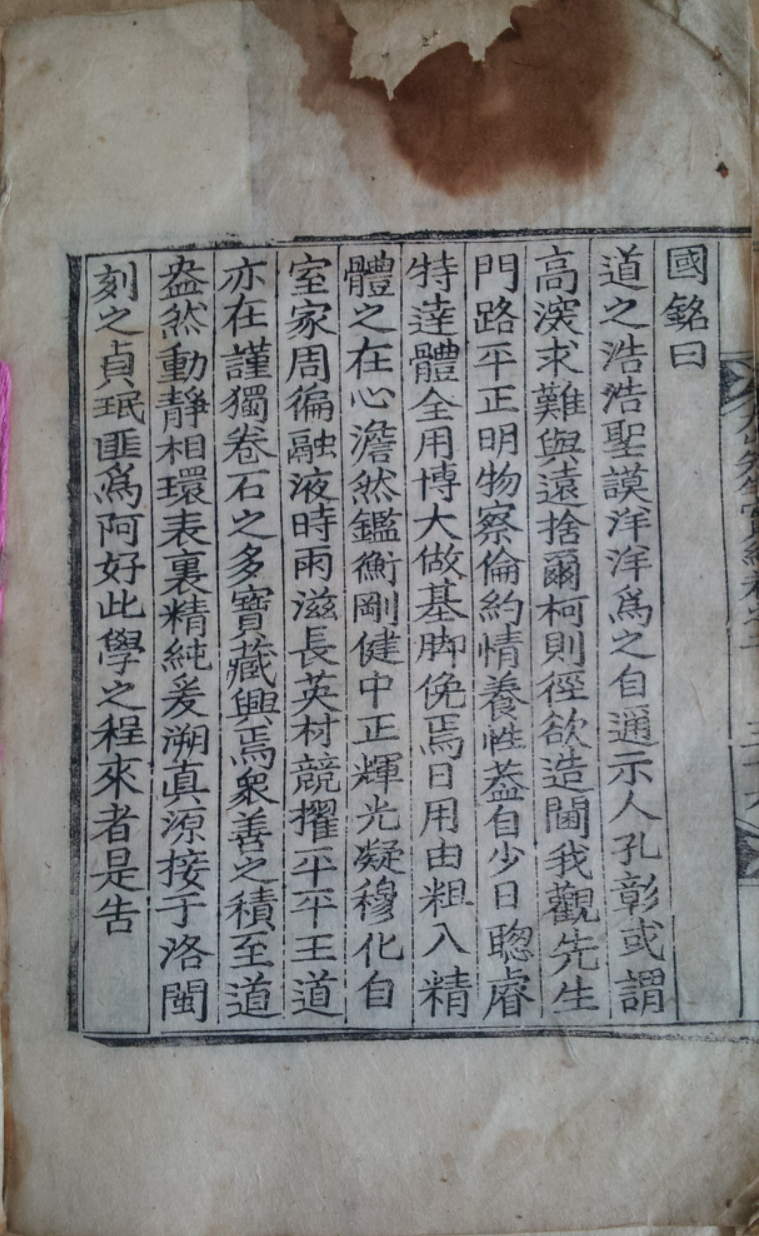 國銘曰
道之浩浩聖謨洋洋爲之自邇示人孔彰或謂
高深求難與遠捨爾柯則徑欲造閫我觀先生
門路平正明物察倫約情養性葢自少日聦睿
特達體全用博大做基脚俛焉日用由粗入精
體之在心澹然鑑衡剛健中正輝光凝穆化自
室家周徧融液時雨滋長英材競擢平平王道
亦在謹獨卷石之多寶藏興焉衆善之積至道
盎然動靜相環表裏精純爰溯真源接于洛閩
刻之貞珉匪爲阿好此學之程來者是告